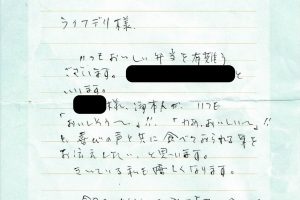 ライフデリ様
いつもおいしい弁当を有難う
ございます。
と
いいます。
様、御本人が、いつも
「おいしそう〜」!!、「わあ、おいしい〜」!!
と、喜びの声と共に食べておられる事を
お伝えしたい、と思います。
きいている私も嬉しくなります。